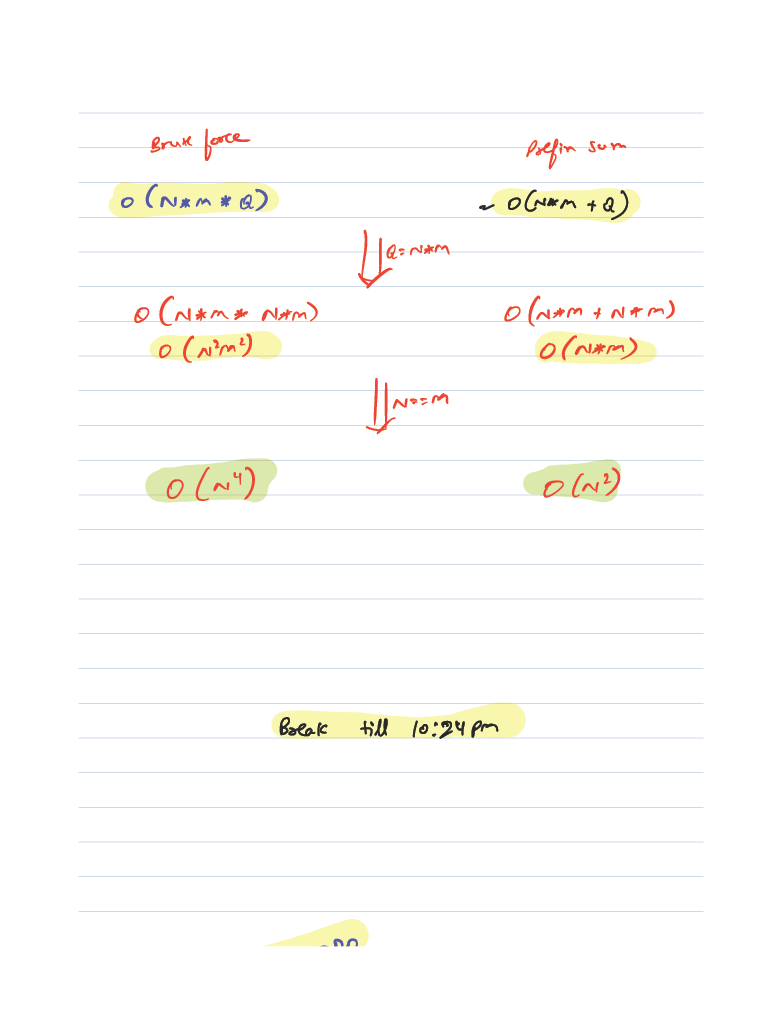 Brute force Prefix sum
O (N*M * Q) O(N*M + Q)
Q=N*M
O (N*M * N*M) O (N*M + N*M)
O (N²M²) O (N*M)
N==M
O (N⁴) O (N²)
Break till 10:24 pm